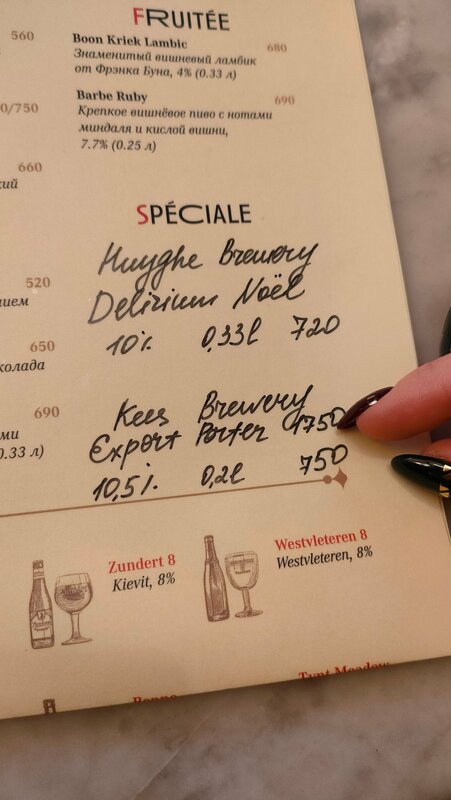 FRUITÉE
560
Boon Kriek Lambic 680
Знаменитый вишневый ламбик
от Фрэнка Буна, 4% (0.33 л)
0/750
Barbe Ruby 690
Крепкое вишнёвое пиво с нотами
миндаля и кислой вишни,
7.7% (0.25 л)
660
кий
SPÉCIALE
Huyghe Brewery
Delirium Noël
10% 0,33l 720
520
ием
650
колада
Kees Brewery
Export Porter 1750
10,5% 0,2l 750
690
ми
0.33 л)
Zundert 8
Kievit, 8%
Westvleteren 8
Westvleteren, 8%
Tynt Meadow